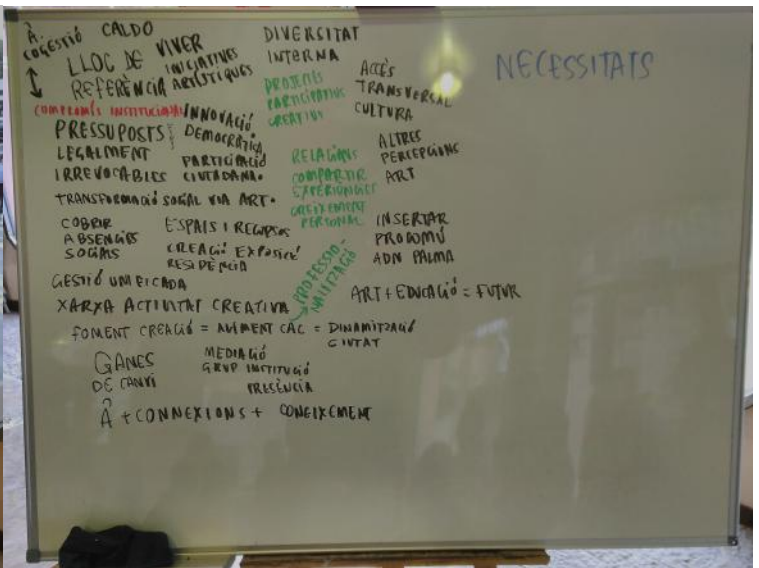 COGESTIÓ
CALDO
LLOC DE
REFERÈNCIA
VIVER
INICIATIVES
ARTÍSTIQUES
DIVERSITAT
INTERNA
NECESSITATS
PROJECTES
PARTICIPATIUS
CREATIUS
ACCÈS
TRANSVERSAL
CULTURA
COMPROMÍS INSTITUCIONAL
PRESSUPOSTS
LEGALMENT
IRREVOCABLES
INNOVACIÓ
DEMOCRÀTICA
PARTICIPACIÓ
CIUTADANA.
RELACIONS
COMPARTIR
EXPERIÈNCIES
CREIXEMENT
PERSONAL
ALTRES
PERCEPCIONS
ART
TRANSFORMACIÓ SOCIAL VIA ART.
COBRIR
ABSENCIES
SOCIALS
ESPAIS I RECURSOS
CREACIÓ EXPOSICIÓ
RESIDÈNCIA
INSERTAR
PROCOMÚ
ADN PALMA
GESTIÓ UNIFICADA
XARXA ACTIVITAT CREATIVA
PROFESSIO-
NALITZACIÓ
ART + EDUCACIÓ = FUTUR
FOMENT CREACIÓ = AUMENT CAC = DINAMITZACIÓ
CIUTAT
GANES
DE CANVI
MEDIACIÓ
GRUP INSTITUCIÓ
PRESÈNCIA
+ CONNEXIONS + CONEIXEMENT